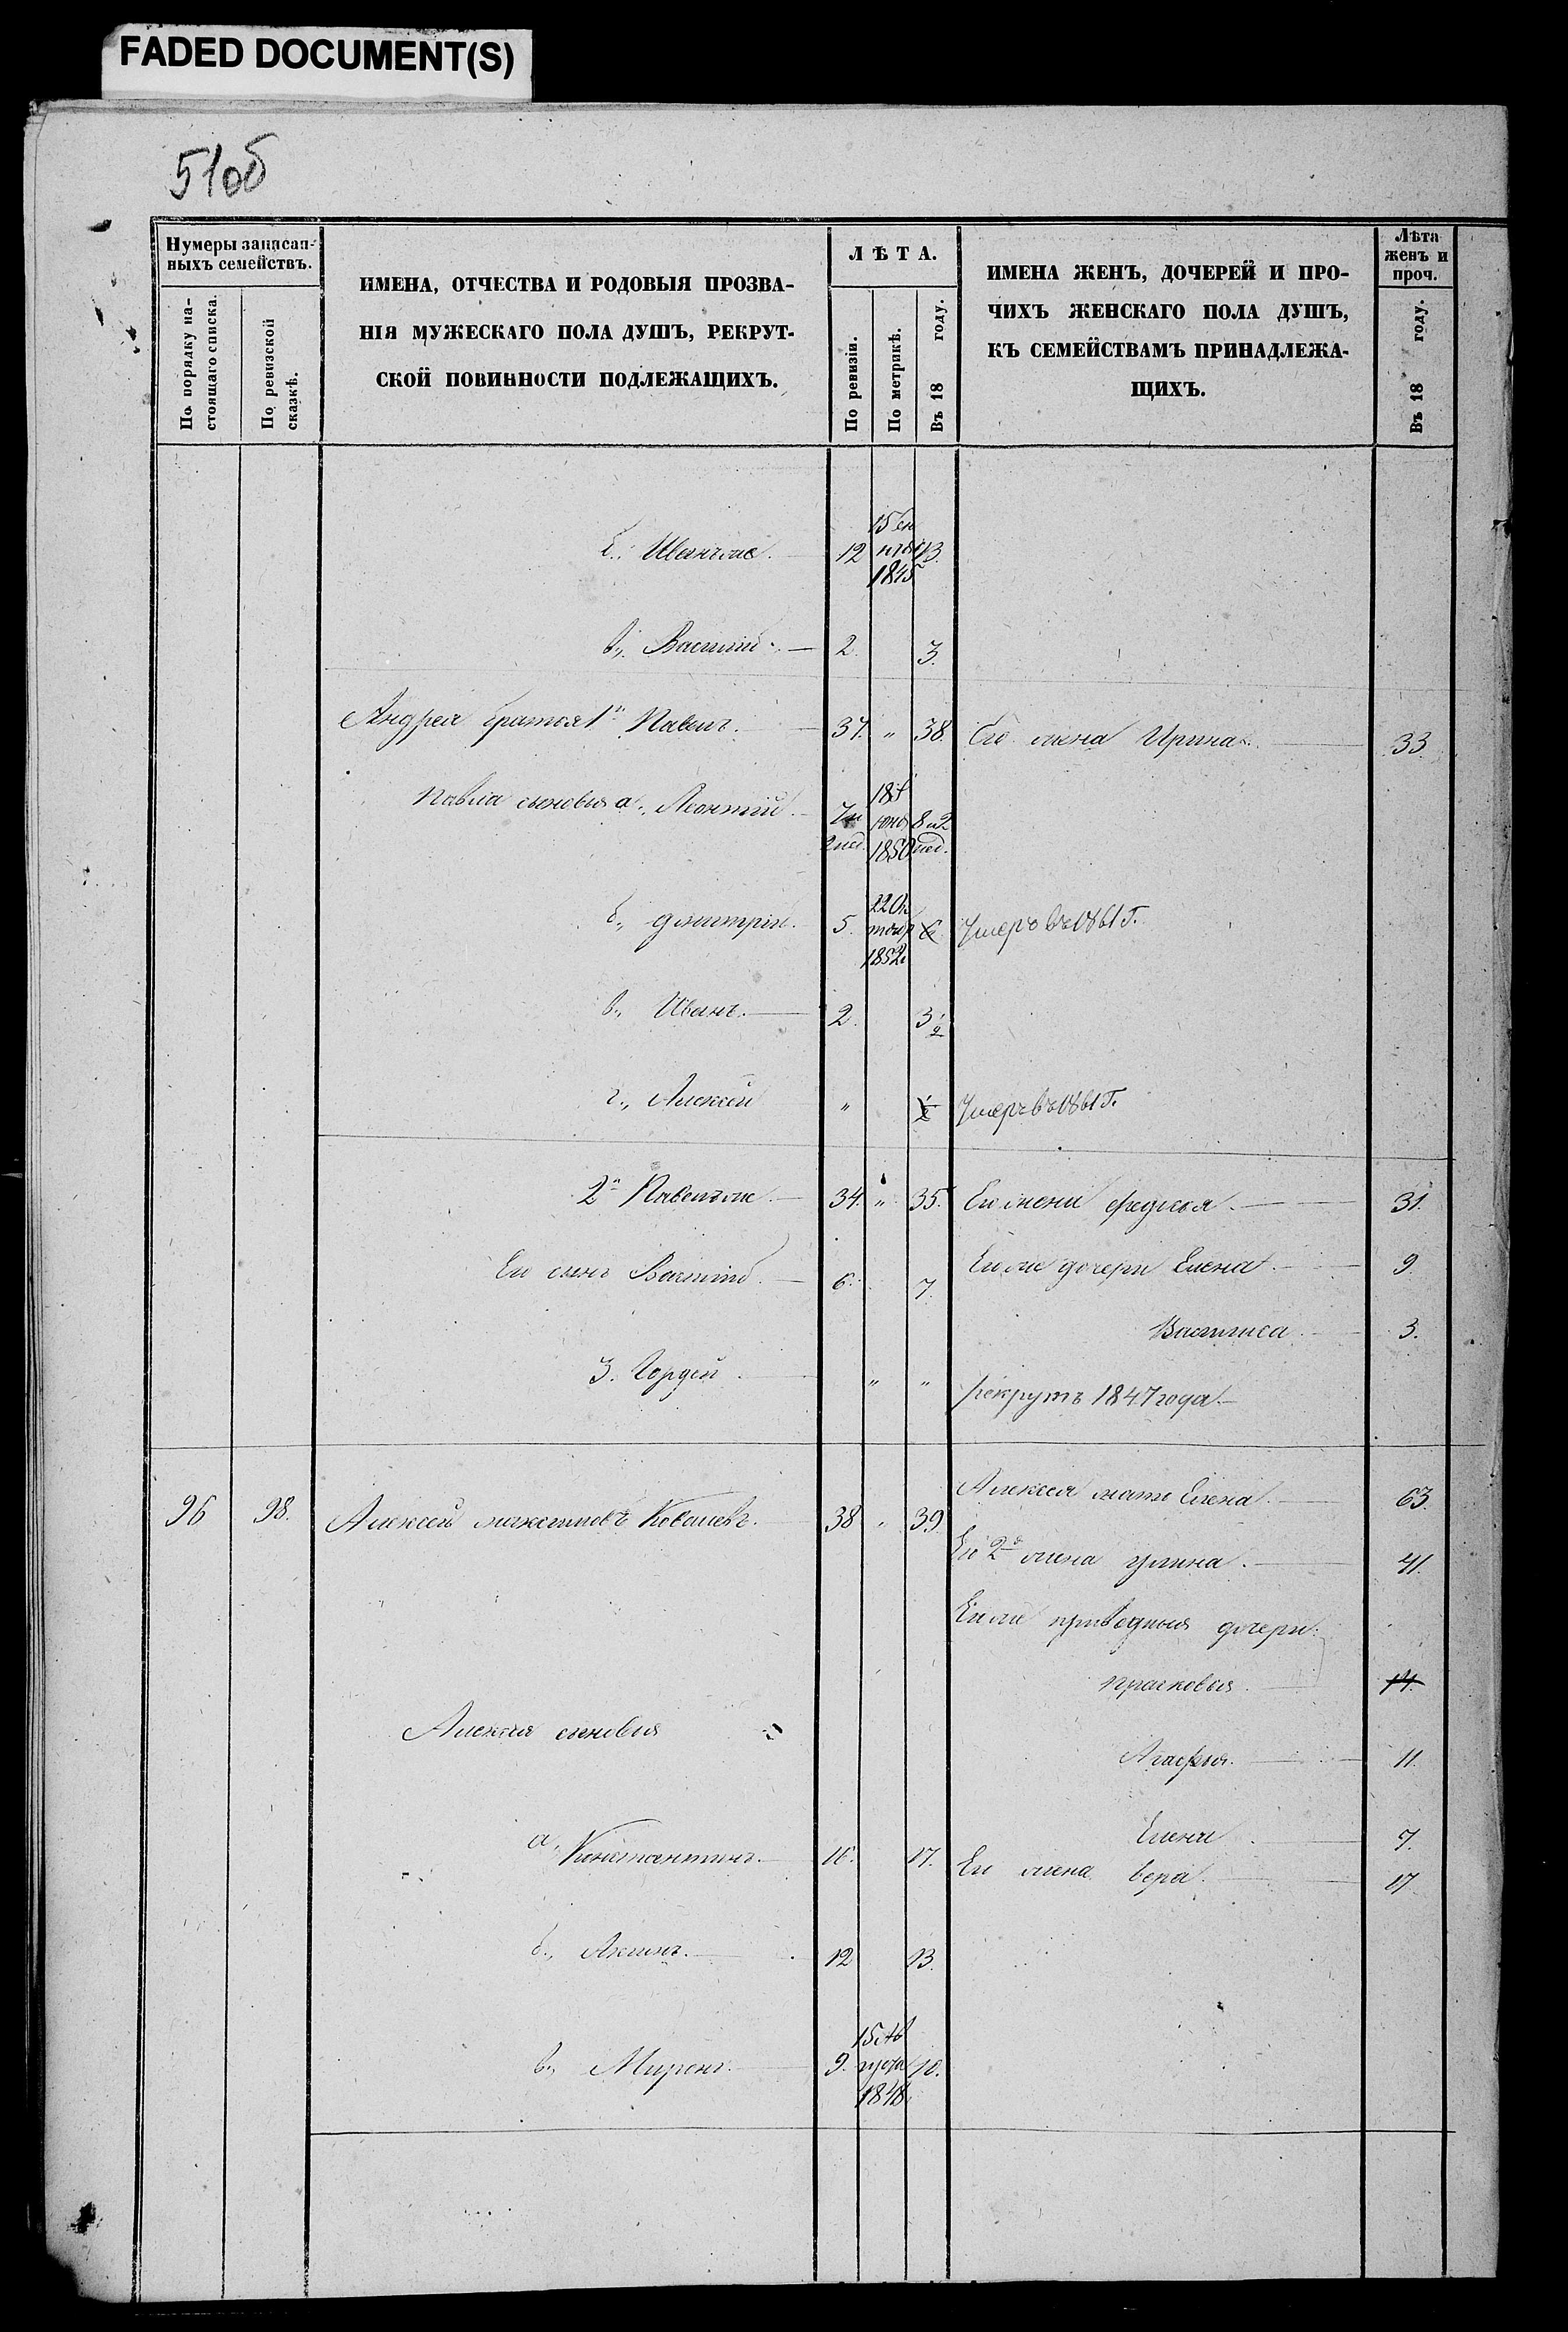 FADED DOCUMENT(S)
51об
Нумеры записан-
ныхъ семействъ.
По порядку на-
стоящаго списка.
По ревизской
сказкѣ.
ИМЕНА, ОТЧЕСТВА И РОДОВЫЯ ПРОЗВА-
НІЯ МУЖЕСКАГО ПОЛА ДУШЪ, РЕКРУТ-
СКОЙ ПОВИННОСТИ ПОДЛЕЖАЩИХЪ.
ЛѢТА.
По ревизіи.
По метрикѣ.
Въ 18 году.
ИМЕНА ЖЕНЪ, ДОЧЕРЕЙ И ПРО-
ЧИХЪ ЖЕНСКАГО ПОЛА ДУШЪ,
КЪ СЕМЕЙСТВАМЪ ПРИНАДЛЕЖА-
ЩИХЪ.
Лѣта
женъ и
проч.
Въ 18 году.
б., Иванъ же. 12 1845 13.
в., Василій. 2. 3.
Андрея братья 1й Павелъ. 37. " 38. Его жена Ирина. 33.
Павла сыновья а., Леонтій. 7 и 2 нед. 1850 8 и 2 нед.
б., Дмитрій. 5. 22 Октяб 1852 6 Умеръ въ 1861 г.
в., Иванъ. 2. 3 1/2
г., Алексѣй " 1/2 Умеръ въ 1861 г.
2й Павелъ же. 34. " 35. Его жена Федосья. 31.
Его сынъ Василій. 6. 7. Его же дочери Елена. 9.
Василиса. 3.
3. Гордей. " " рекрутъ 1847 года
96 98. Алексей Ковалевъ. 38 " 39. Алексея мать Елена. 63.
Его 2я жена Улина. 41.
Его же приводныя дочери:
Прасковья. 14.
Алексея сыновья
Агафья. 11.
Елена. 7.
а., Константинъ. 16. 17. Его жена Вера. 17
б., Акимъ. 12 13.
в., Миронъ. 9. 15 Августа 1848 10.